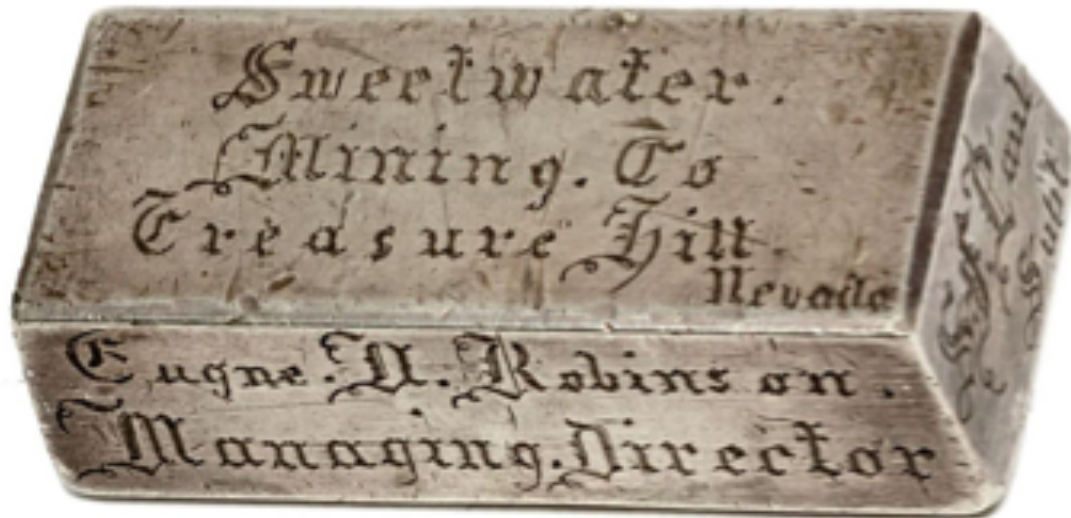 Sweetwater.
Mining. Co
Treasure Hill.
Nevada
Eugne. N. Robinson.
Managing. Director
Paul